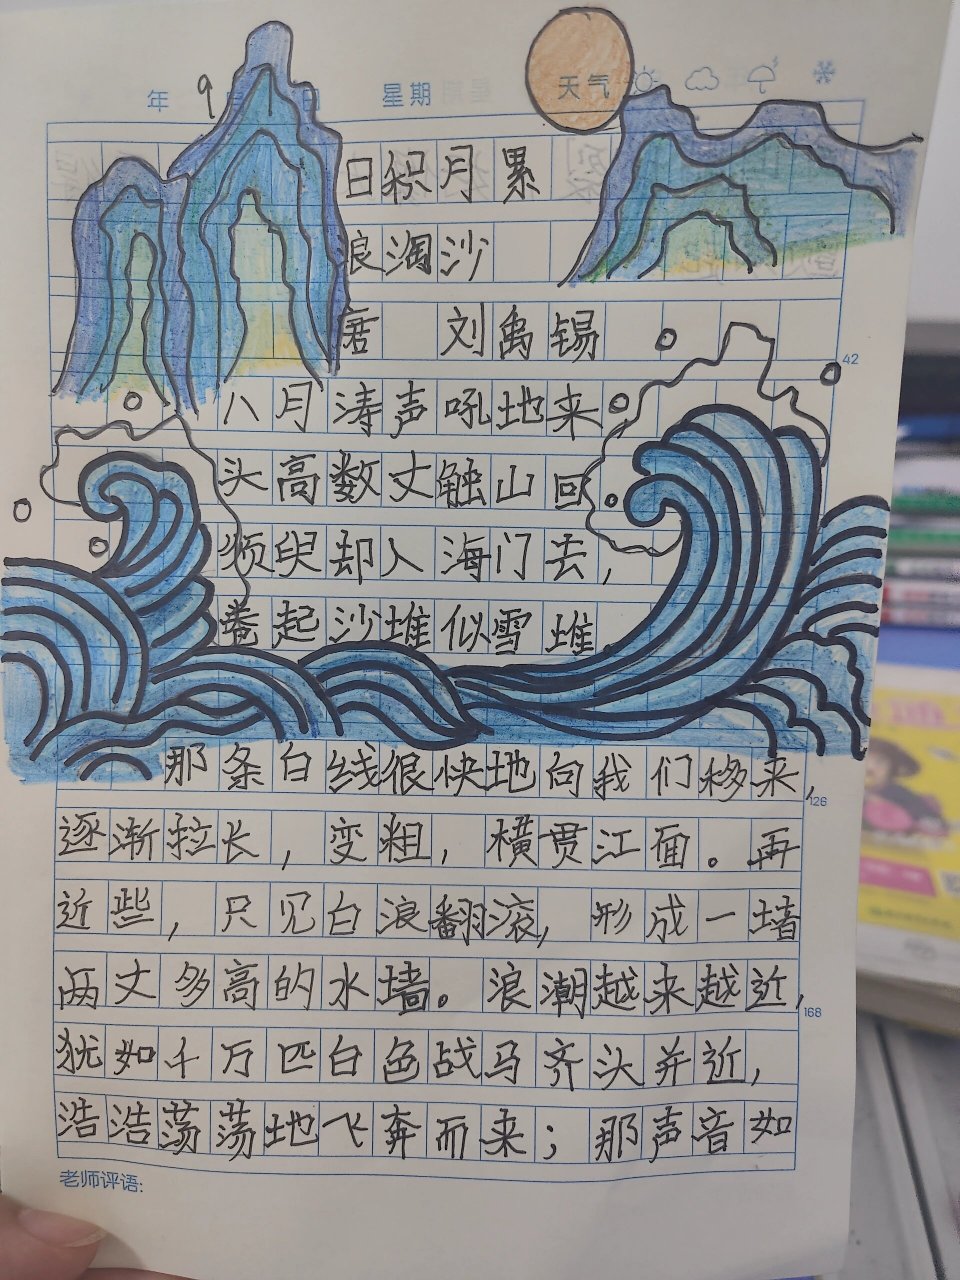 年 9 月 日 星期 天气
日积月累
浪淘沙
唐 刘禹锡
八月涛声吼地来
头高数丈触山回
须臾却入海门去，
卷起沙堆似雪堆。
42
那条白线很快地向我们移来，
126
逐渐拉长，变粗，横贯江面。再
近些，只见白浪翻滚，形成一墙
两丈多高的水墙。浪潮越来越近，
168
犹如千万匹白色战马齐头并近，
浩浩荡荡地飞奔而来；那声音如
老师评语: